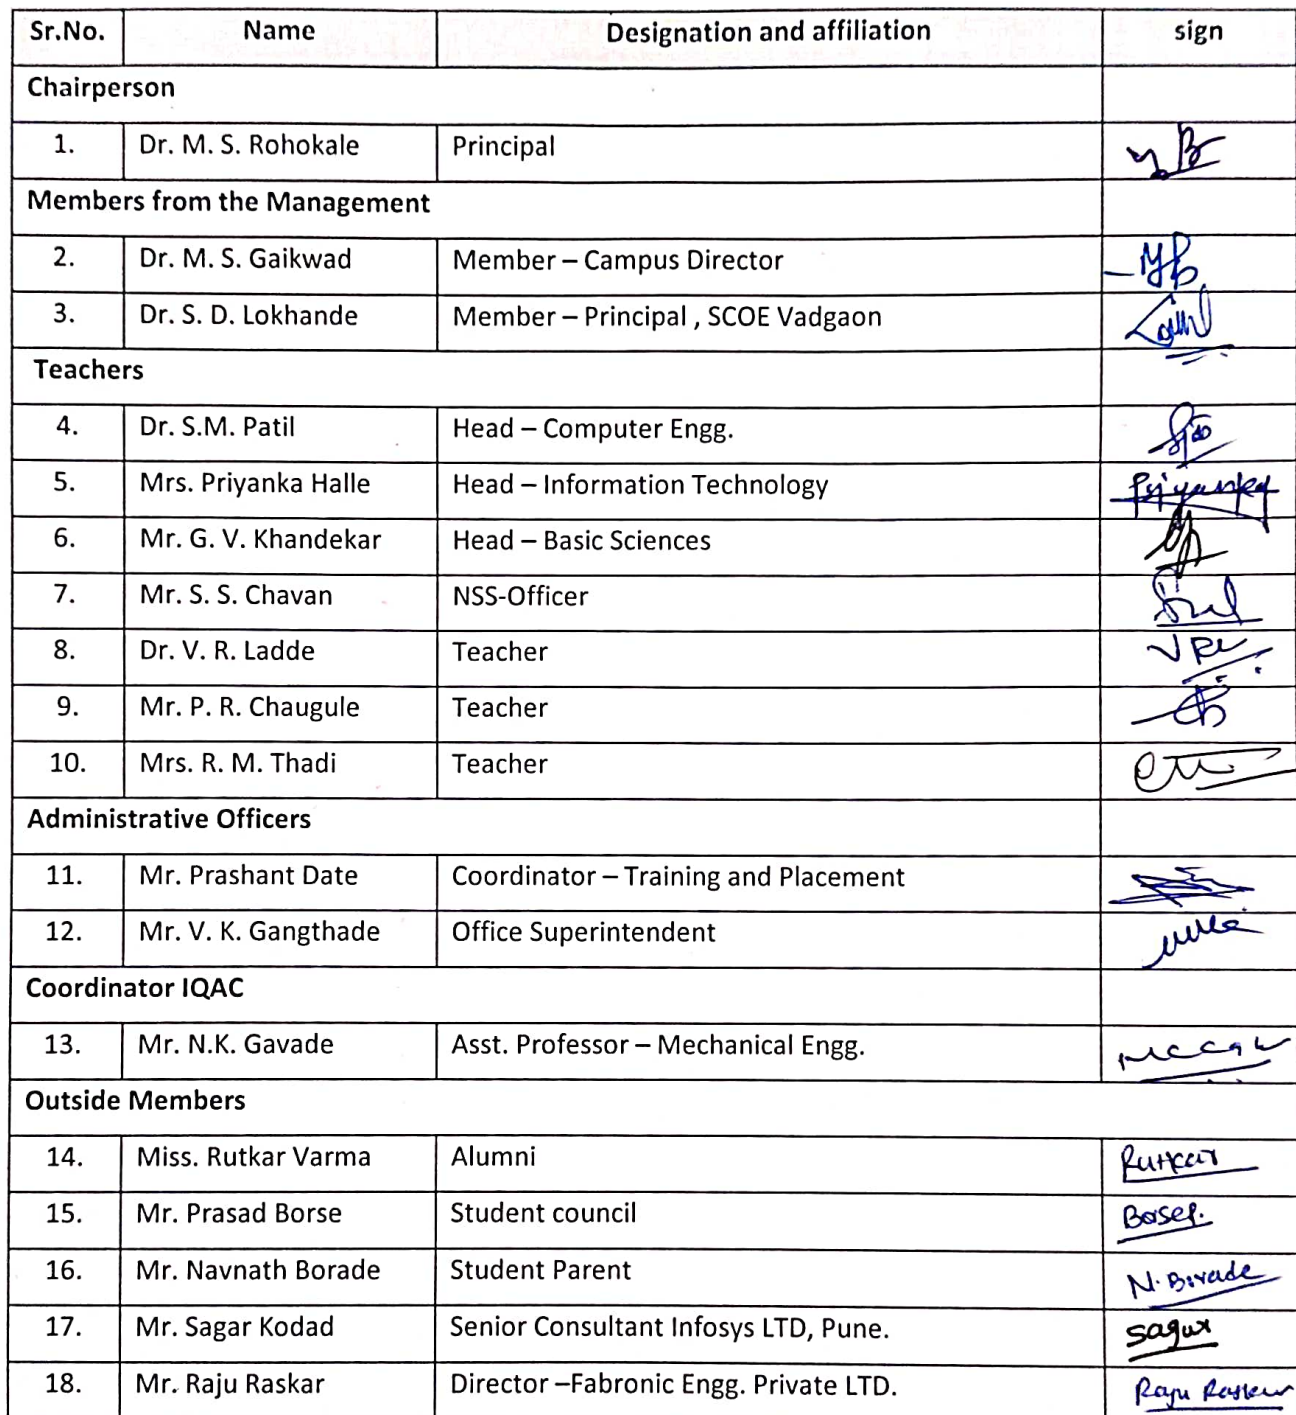 Sr.No. Name Designation and affiliation sign
Chairperson
1. Dr. M. S. Rohokale Principal
Members from the Management
2. Dr. M. S. Gaikwad Member – Campus Director
3. Dr. S. D. Lokhande Member – Principal , SCOE Vadgaon
Teachers
4. Dr. S.M. Patil Head – Computer Engg.
5. Mrs. Priyanka Halle Head – Information Technology Priyanka
6. Mr. G. V. Khandekar Head – Basic Sciences
7. Mr. S. S. Chavan NSS-Officer
8. Dr. V. R. Ladde Teacher
9. Mr. P. R. Chaugule Teacher
10. Mrs. R. M. Thadi Teacher
Administrative Officers
11. Mr. Prashant Date Coordinator – Training and Placement
12. Mr. V. K. Gangthade Office Superintendent
Coordinator IQAC
13. Mr. N.K. Gavade Asst. Professor – Mechanical Engg.
Outside Members
14. Miss. Rutkar Varma Alumni Rutkar
15. Mr. Prasad Borse Student council
16. Mr. Navnath Borade Student Parent N. Borade
17. Mr. Sagar Kodad Senior Consultant Infosys LTD, Pune. Sagar
18. Mr. Raju Raskar Director –Fabronic Engg. Private LTD. Raju Raskar